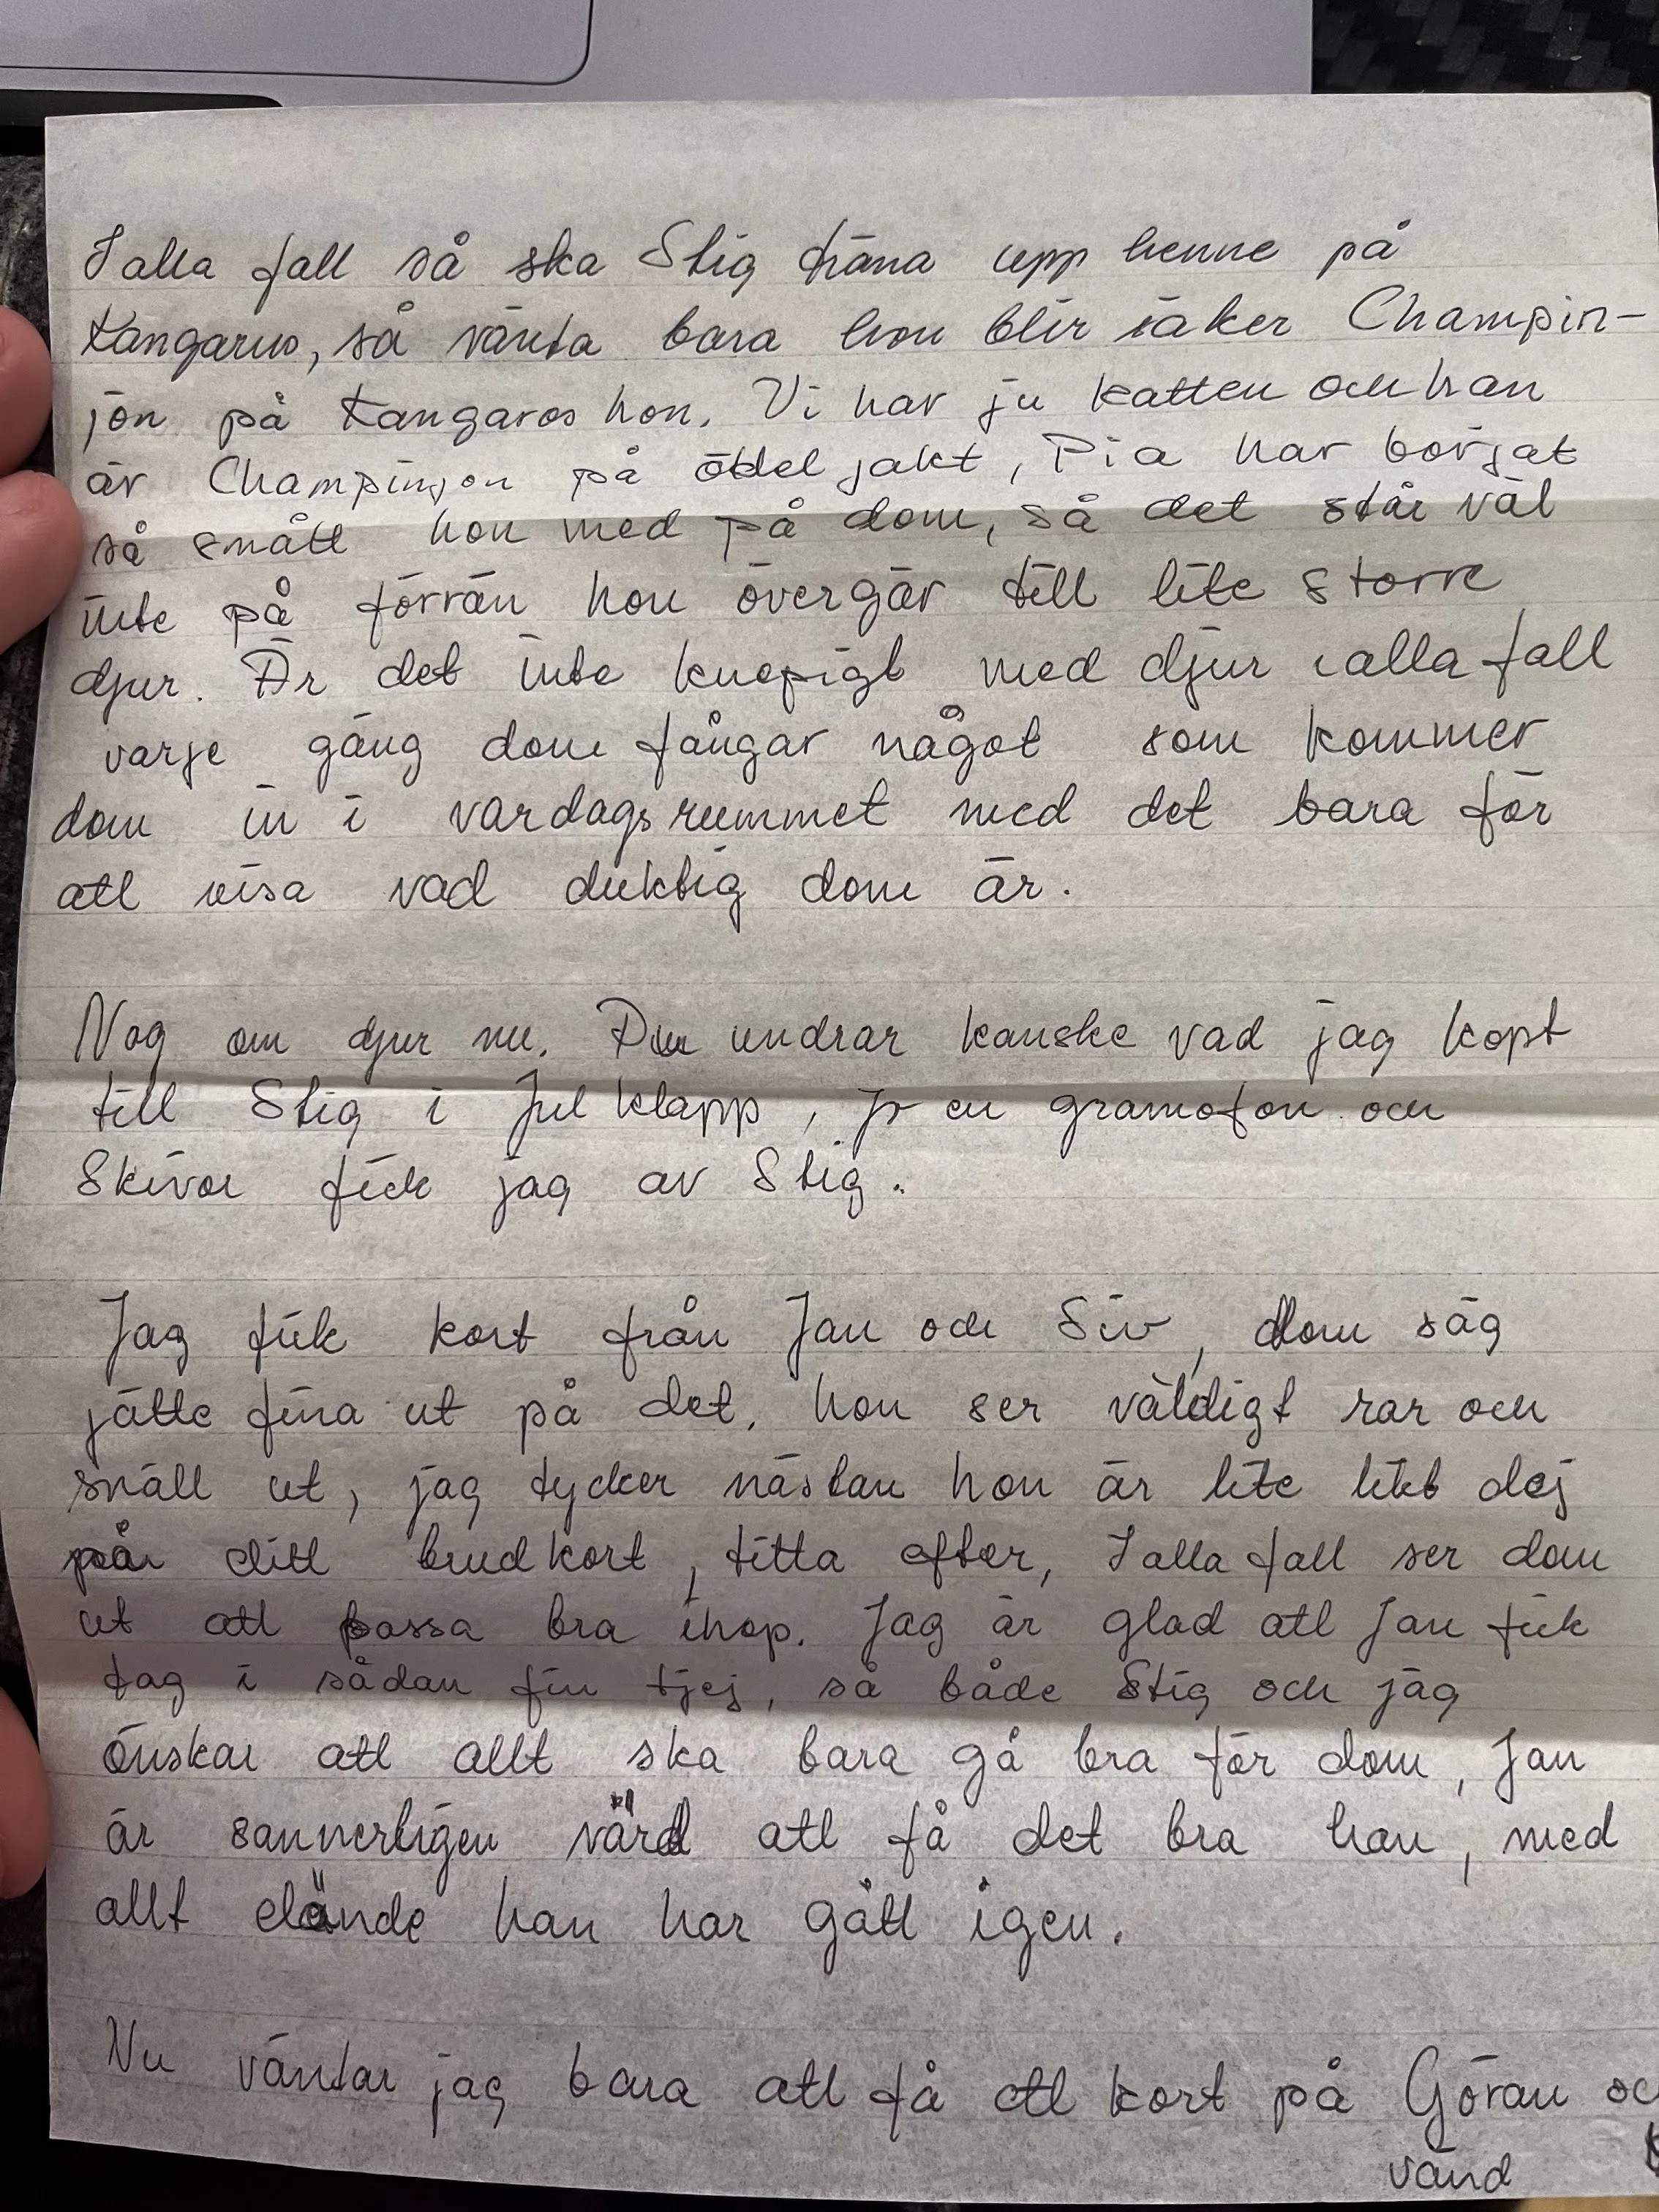 I alla fall så ska Stig träna upp henne på
Kangaruo, så vänta bara hon blir säker Champin-
jon på Kangaros hon. Vi har ju katten och han
är Champinjon på ödel jakt, Pia har börjat
så smått hon med på dom, så det står väl
inte på förrän hon övergår till lite större
djur. Är det inte knepigt med djur i alla fall
varje gång dom fångar något som kommer
dom in i vardagsrummet med det bara för
att visa vad duktig dom är.
Nog om djur nu. Du undrar kanske vad jag köpt
till Stig i Jul klapp, jo en gramofon och
Skivor fick jag av Stig.
Jag fick kort från Jan och Siv, dom såg
jätte fina ut på det, hon ser väldigt rar och
snäll ut, jag tycker nästan hon är lite likt dej
på ditt brudkort, titta efter, I alla fall ser dom
ut att passa bra ihop. Jag är glad att Jan fick
tag i sådan fin tjej, så både Stig och jag
önskar att allt ska bara gå bra för dom, Jan
är sannerligen värd att få det bra han, med
allt elände han har gått igen.
Nu väntar jag bara att få ett kort på Göran oc
vänd